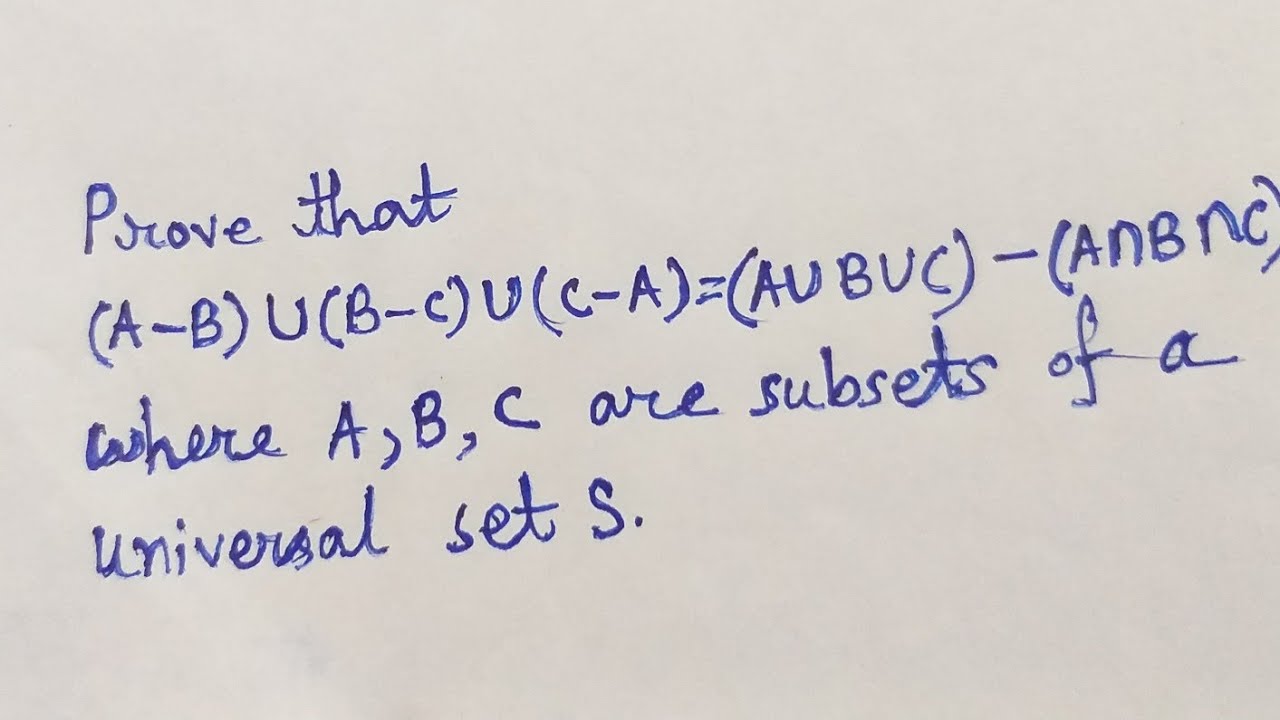 Prove that
(A-B)∪(B-C)∪(C-A)=(A∪B∪C)-(A∩B∩C)
where A, B, C are subsets of a
universal set S.